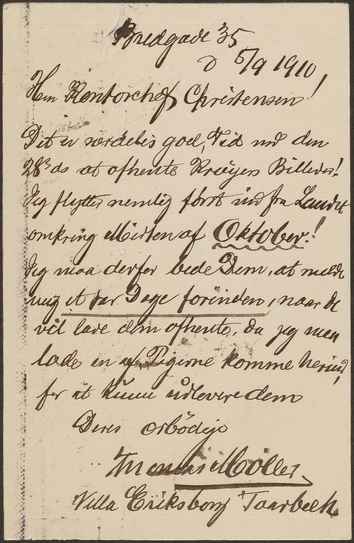 Bredgade 35
d 5/9 1910,
Hr. Kontorchef Christensen!
Det er særdeles god Tid med den
28de ds at afhente Krøyers Billeder!
Jeg flytter nemlig først ind fra Landet
omkring Midten af Oktober!
Jeg maa derfor bede Dem, at melde
mig et Par Dage forinden, naar De
vil lade dem afhente, da jeg maa
lade en af Pigerne komme herind,
for at kunne udlevere dem
Deres ærbødige
Møller
Villa Eriksborg Taarbæk